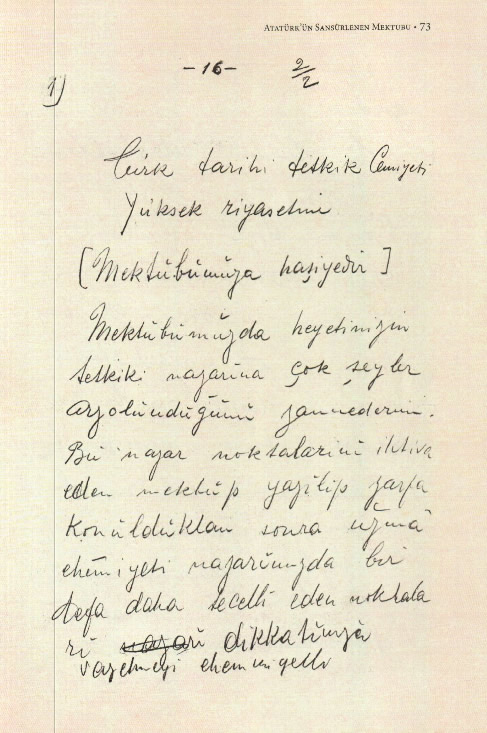 ATATÜRK'ÜN SANSÜRLENEN MEKTUBU • 73
-16- 2/2
1)
Türk tarihi tetkik Cemiyeti
Yüksek riyasetine
[Mektübümüza haşiyedir]
Mektübümüzda heyetinizin
tetkiki nazarına çok şeyler
arzolündüğünü zannederim.
Bü nazar noktalarını ihtiva
eden mektüp yazılıp zarfa
konüldüktan sonra uzmâ
ehemiyeti nazarümzda bir
defa daha tecelli eden noktala
rı nazarı dikkatünüza
vazetmeyi ehemmiyetli